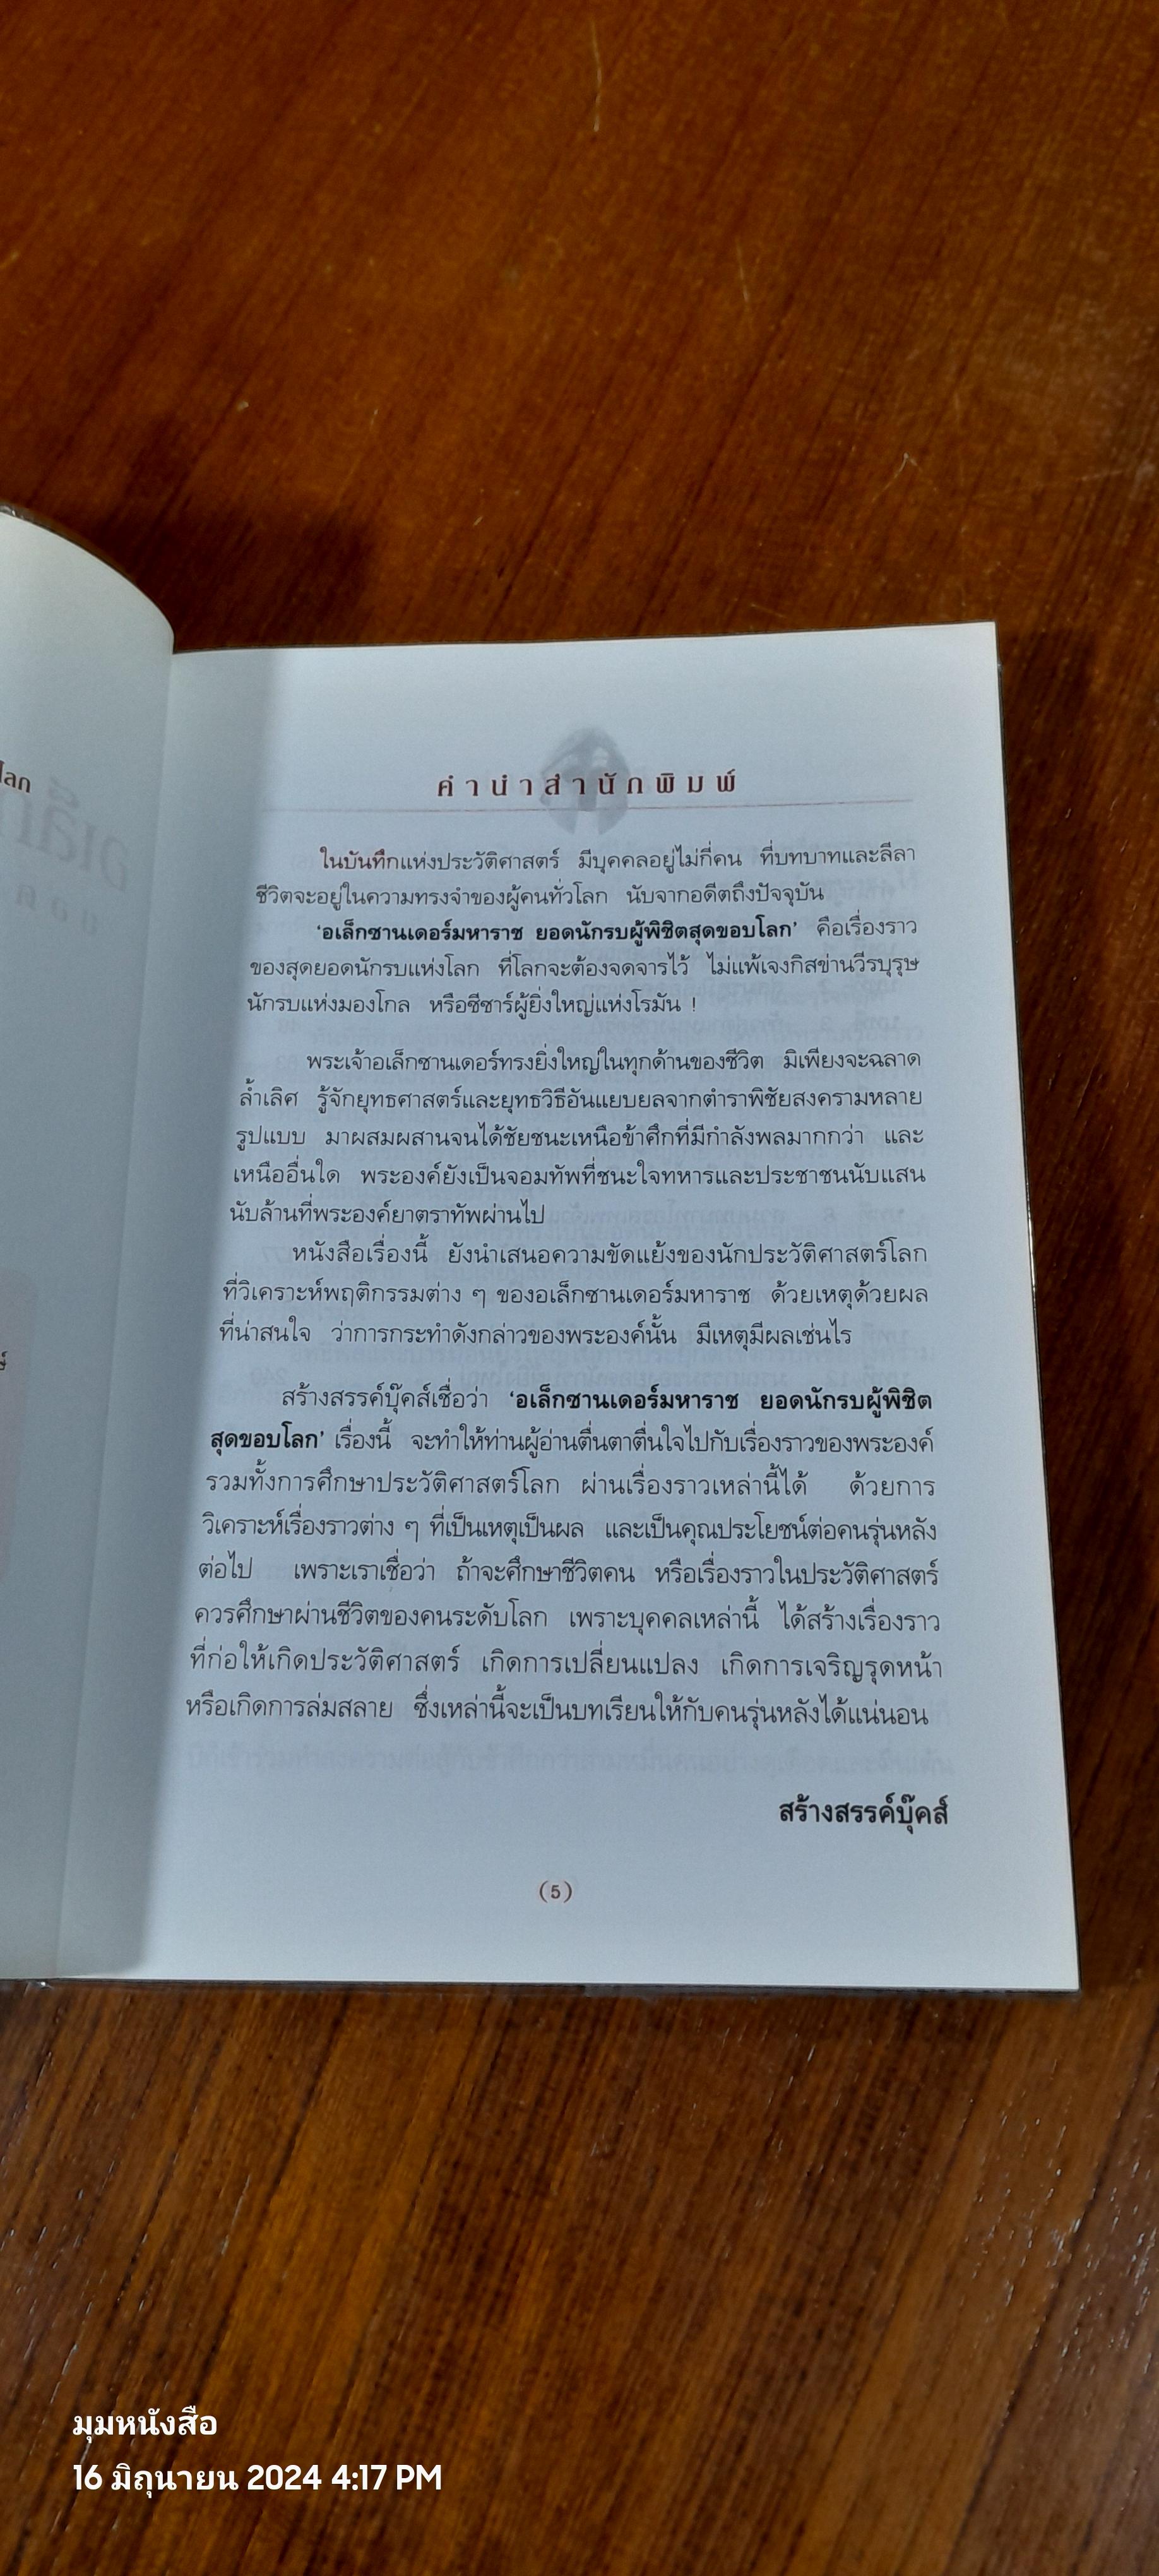 คำนำสำนักพิมพ์
ในบันทึกแห่งประวัติศาสตร์ มีบุคคลอยู่ไม่กี่คน ที่บทบาทและลีลา
ชีวิตจะอยู่ในความทรงจำของผู้คนทั่วโลก นับจากอดีตถึงปัจจุบัน
‘อเล็กซานเดอร์มหาราช ยอดนักรบผู้พิชิตสุดขอบโลก’ คือเรื่องราว
ของสุดยอดนักรบแห่งโลก ที่โลกจะต้องจดจารไว้ ไม่แพ้เจงกิสข่านวีรบุรุษ
นักรบแห่งมองโกล หรือซีซาร์ผู้ยิ่งใหญ่แห่งโรมัน !
พระเจ้าอเล็กซานเดอร์ทรงยิ่งใหญ่ในทุกด้านของชีวิต มิเพียงจะฉลาด
ล้ำเลิศ รู้จักยุทธศาสตร์และยุทธวิธีอันแยบยลจากตำราพิชัยสงครามหลาย
รูปแบบ มาผสมผสานจนได้ชัยชนะเหนือข้าศึกที่มีกำลังพลมากกว่า และ
เหนืออื่นใด พระองค์ยังเป็นจอมทัพที่ชนะใจทหารและประชาชนนับแสน
นับล้านที่พระองค์ยาตราทัพผ่านไป
หนังสือเรื่องนี้ ยังนำเสนอความขัดแย้งของนักประวัติศาสตร์โลก
ที่วิเคราะห์พฤติกรรมต่าง ๆ ของอเล็กซานเดอร์มหาราช ด้วยเหตุด้วยผล
ที่น่าสนใจ ว่าการกระทำดังกล่าวของพระองค์นั้น มีเหตุมีผลเช่นไร
สร้างสรรค์บุ๊คส์เชื่อว่า ‘อเล็กซานเดอร์มหาราช ยอดนักรบผู้พิชิต
สุดขอบโลก’ เรื่องนี้ จะทำให้ท่านผู้อ่านตื่นตาตื่นใจไปกับเรื่องราวของพระองค์
รวมทั้งการศึกษาประวัติศาสตร์โลก ผ่านเรื่องราวเหล่านี้ได้ ด้วยการ
วิเคราะห์เรื่องราวต่าง ๆ ที่เป็นเหตุเป็นผล และเป็นคุณประโยชน์ต่อคนรุ่นหลัง
ต่อไป เพราะเราเชื่อว่า ถ้าจะศึกษาชีวิตคน หรือเรื่องราวในประวัติศาสตร์
ควรศึกษาผ่านชีวิตของคนระดับโลก เพราะบุคคลเหล่านี้ ได้สร้างเรื่องราว
ที่ก่อให้เกิดประวัติศาสตร์ เกิดการเปลี่ยนแปลง เกิดการเจริญรุดหน้า
หรือเกิดการล่มสลาย ซึ่งเหล่านี้จะเป็นบทเรียนให้กับคนรุ่นหลังได้แน่นอน
สร้างสรรค์บุ๊คส์
(5)
มุมหนังสือ
16 มิถุนายน 2024 4:17 PM